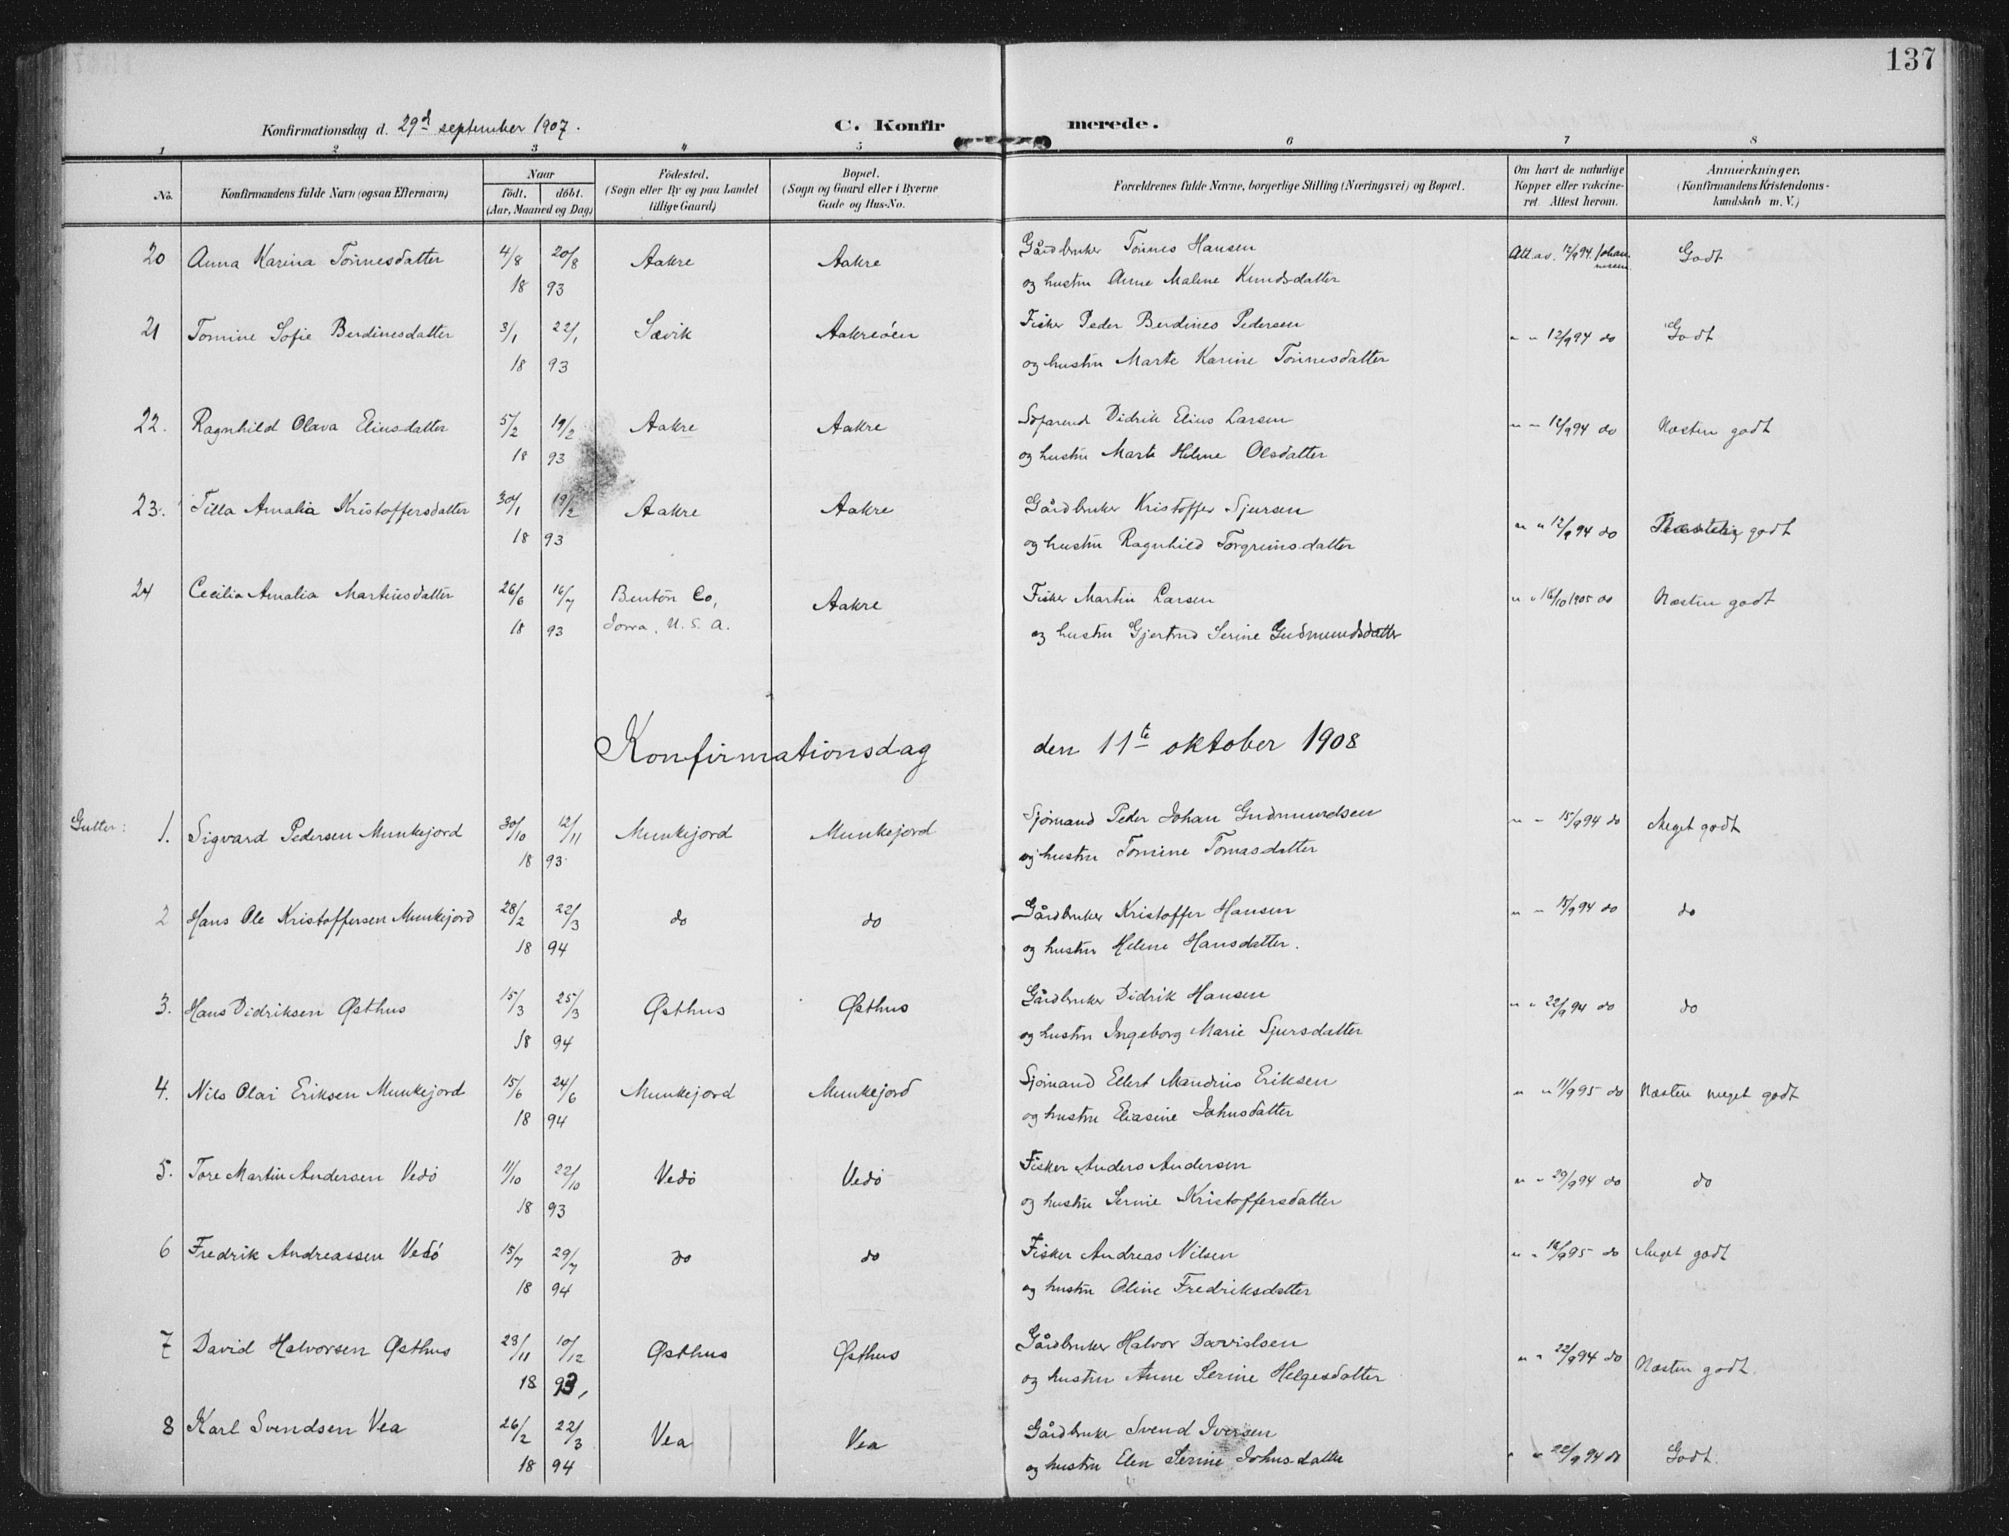 137
Konfirmationsdag d. 29d september 1907.
C. Konfirmerede.
1 2 3 4 5 6 7 8
No. Konfirmandens fulde Navn (ogsaa Efternavn)
Naar
født. døbt.
(Aar, Maaned og Dag)
Födested.
(Sogn eller By og paa Landet
tillige Gaard)
Bopæl.
(Sogn og Gaard eller i Byerne
Gade og Hus-No.
Forældrenes fulde Navne, borgerlige Stilling (Næringsvei) og Bopæl.
Om havt de naturlige
Kopper eller vakcine-
ret. Attest herom.
Anmærkninger.
(Konfirmandens Kristendoms-
kundskab m. V.)
20 Anna Karina Tönnesdatter 4/8 20/8 Aakre Aakre Gårdbruker Tönnes Hansen Att. av. 12/9 94 Johan- Godt
18 93 og hustru Anne Malene Knudsdatter nesen
21 Tomine Sofie Berdinesdatter 3/1 22/1 Sævik Aakreöen Fisker Peder Berdines Pedersen " " 12/9 94 do Godt
18 93 og hustru Marte Karine Tönnesdatter
22. Ragnhild Olava Eliusdatter 5/2 19/2 Aakre Aakre Söfarend Didrik Elius Larsen " " 12/9 94 do Næsten godt
18 93 og hustru Marte Helene Olsdatter
23. Tilla Amalia Kristoffersdatter 30/1 19/2 Aakre Aakre Gårdbruker Kristoffer Sjursen " " 12/9 94 do godt
18 93 og hustru Ragnhild Torgrimsdatter
24 Cecilia Amalia Martinsdatter 26/6 16/7 Benton Co, Aakre Fisker Martin Larsen " " 16/10 1905 do Næsten godt
18 93 Iowa, U. S. A. og hustru Gjertrud Serine Gudmundsdatter
Konfirmationsdag den 11te oktober 1908
Gutter: 1. Sigvard Pedersen Munkejord 30/10 12/11 Munkejord Munkejord Sjömand Peder Johan Gudmundsen " " 15/9 94 do Meget godt
18 93 og hustru Tomine Tomasdatter
2 Hans Ole Kristoffersen Munkejord 28/2 22/3 do do Gårdbruker Kristoffer Hansen " " 15/9 94 do do
18 94 og hustru Helene Hansdatter.
3. Hans Didriksen Østhus 15/3 25/3 Østhus Østhus Gårdbruker Didrik Hansen " " 22/9 94 do do
18 94 og hustru Ingeborg Marie Sjursdatter
4. Nils Olai Eriksen Munkejord 15/6 24/6 Munkejord Munkejord Sjömand Ellert Mandrus Eriksen " " 11/9 95 do Næsten meget godt
18 94 og hustru Eliasine Johnsdatter
5. Tore Martin Andersen Vedö 11/10 22/10 Vedö Vedö Fisker Anders Andersen " " 29/9 94 do do
18 93 og hustru Serine Kristoffersdatter
6 Fredrik Andreassen Vedö 15/7 29/7 do do Fisker Andreas Nilsen " " 16/9 95 do Meget godt
18 94 og hustru Oline Fredriksdatter
7 David Halvorsen Østhus 23/11 10/12 Østhus Østhus Gårdbruker Halvor Davidsen " " 22/9 94 do Næsten godt.
18 93, og hustru Anne Serine Helgesdatter
8 Karl Svendsen Vea 26/2 22/3 Vea Vea Gårdbruker Svend Iversen " " 22/9 94 do Godt.
18 94 og hustru Elen Serine Johnsdatter